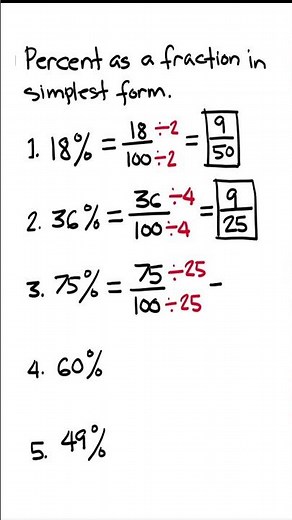 Percent as a fraction in
simplest form.
1. 18% = 18÷2/100÷2 = 9/50
2. 36% = 36÷4/100÷4 = 9/25
3. 75% = 75÷25/100÷25 -
4. 60%
5. 49%